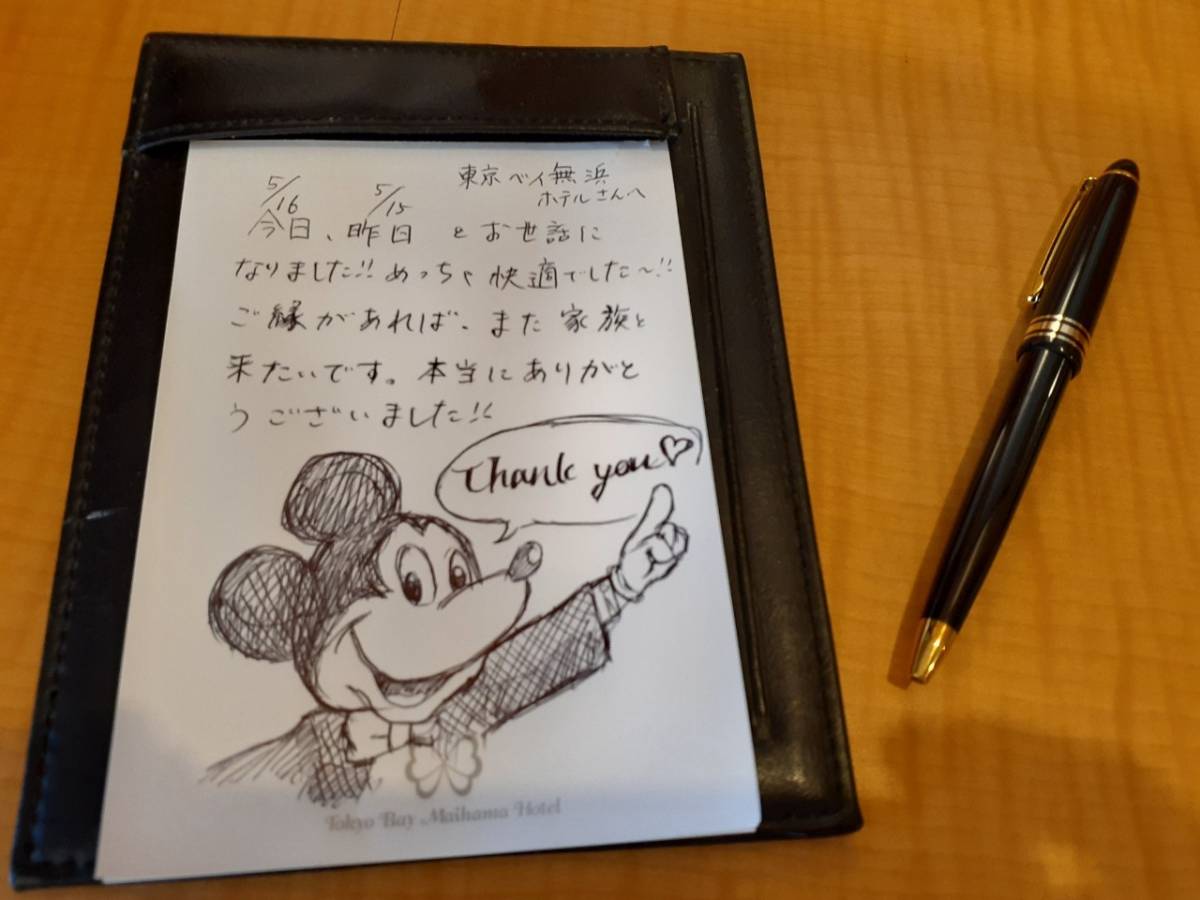 東京ベイ無浜
ホテルさんへ
5/16 5/15
今日、昨日 とお世話に
なりました!! めっちゃ快適でした〜!!
ご縁があれば、また家族と
来たいです。本当にありがと
うございました!!
Thank you♡
Tokyo Bay Maihama Hotel